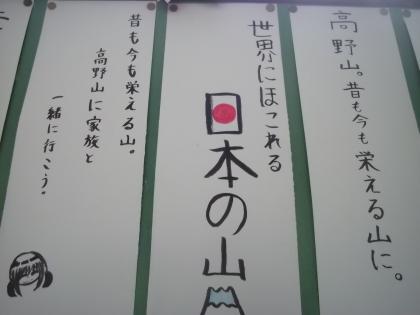 高野山。昔も今も栄える山に。
世界にほこれる
日本の山
昔も今も栄える山。
高野山に家族と
一緒に行こう。